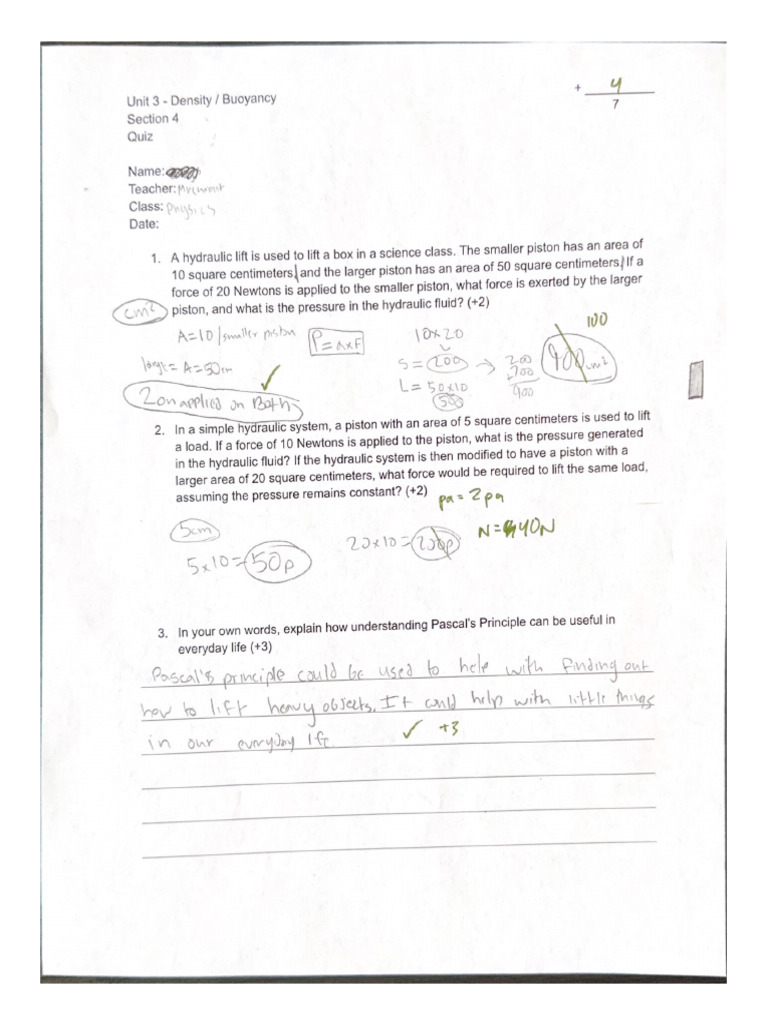 + 4
7
Unit 3 - Density / Buoyancy
Section 4
Quiz
Name:
Teacher:
Class: Physics
Date:
1. A hydraulic lift is used to lift a box in a science class. The smaller piston has an area of
10 square centimeters, and the larger piston has an area of 50 square centimeters. If a
force of 20 Newtons is applied to the smaller piston, what force is exerted by the larger
piston, and what is the pressure in the hydraulic fluid? (+2)
cm²
A=10/smaller piston
P=axF
10x20
100
S=200
→
200
+700
900
900cm²
large= A=50cm
L= 50x10
500
✓
20n applied on Both
2. In a simple hydraulic system, a piston with an area of 5 square centimeters is used to lift
a load. If a force of 10 Newtons is applied to the piston, what is the pressure generated
in the hydraulic fluid? If the hydraulic system is then modified to have a piston with a
larger area of 20 square centimeters, what force would be required to lift the same load,
assuming the pressure remains constant? (+2)
pa= 2pa
5cm
N= 40N
5x10=50p
20x10=200p
3. In your own words, explain how understanding Pascal's Principle can be useful in
everyday life (+3)
Pascal's principle could be used to help with finding out
how to lift heavy objects. It could help with little things
in our everyday life
✓ +3